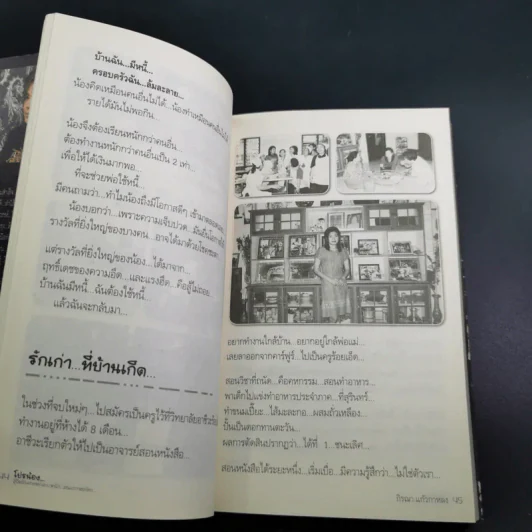 บ้านฉัน...มีหนี้...
ครอบครัวฉัน...ล้มละลาย...
น้องคิดเหมือนคนอื่นไม่ได้...น้องทำเหมือนคนอื่นไม่ได้
รายได้มันไม่พอกิน...
น้องจึงต้องเรียนหนักกว่าคนอื่น...
ต้องทำงานหนักกว่าคนอื่นเป็น 2 เท่า...
เพื่อให้ได้เงินมากพอ...
ที่จะช่วยพ่อใช้หนี้...
มีคนถามว่า...ทำไมน้องถึงมีโอกาสดีๆ เข้ามา
น้องบอกว่า...เพราะความเจ็บปวด...
รางวัลที่ยิ่งใหญ่ของบางคน...อาจได้มาด้วยโชคชะตา
แต่รางวัลที่ยิ่งใหญ่ของน้อง...ได้มาจาก
ฤทธิ์เดชของความอึด...และแรงฮึด...คือสู้ไม่ถอย
บ้านฉันมีหนี้...ฉันต้องใช้หนี้...
แล้วฉันจะกลับมา...
รักเก่า...ที่บ้านเกิด...
ในช่วงที่จบใหม่ๆ...ไปสมัครเป็นครูไว้ที่วิทยาลัยอาชีวะ
ทำงานอยู่ที่ห้างได้ 8 เดือน...
อาชีวะเรียกตัวให้ไปเป็นอาจารย์สอนหนังสือ...
อยากทำงานใกล้บ้าน...อยากอยู่ใกล้พ่อแม่...
เลยลาออกจากคาร์ฟูร์...ไปเป็นครูร้อยเอ็ด...
สอนวิชาที่ถนัด...คือคหกรรม...สอนทำอาหาร...
พาเด็กไปแข่งทำอาหารประจำภาค...ที่สุรินทร์...
ทำขนมเปี๊ยะ...ไส้มะละกอ...ผสมถั่วเหลือง...
ปั้นเป็นดอกทานตะวัน...
ผลการตัดสินปรากฏว่า...ได้ที่ 1...ชนะเลิศ...
สอนหนังสือได้ระยะหนึ่ง...เริ่มเบื่อ...มีความรู้สึกว่า...ไม่ใช่ตัวเรา...